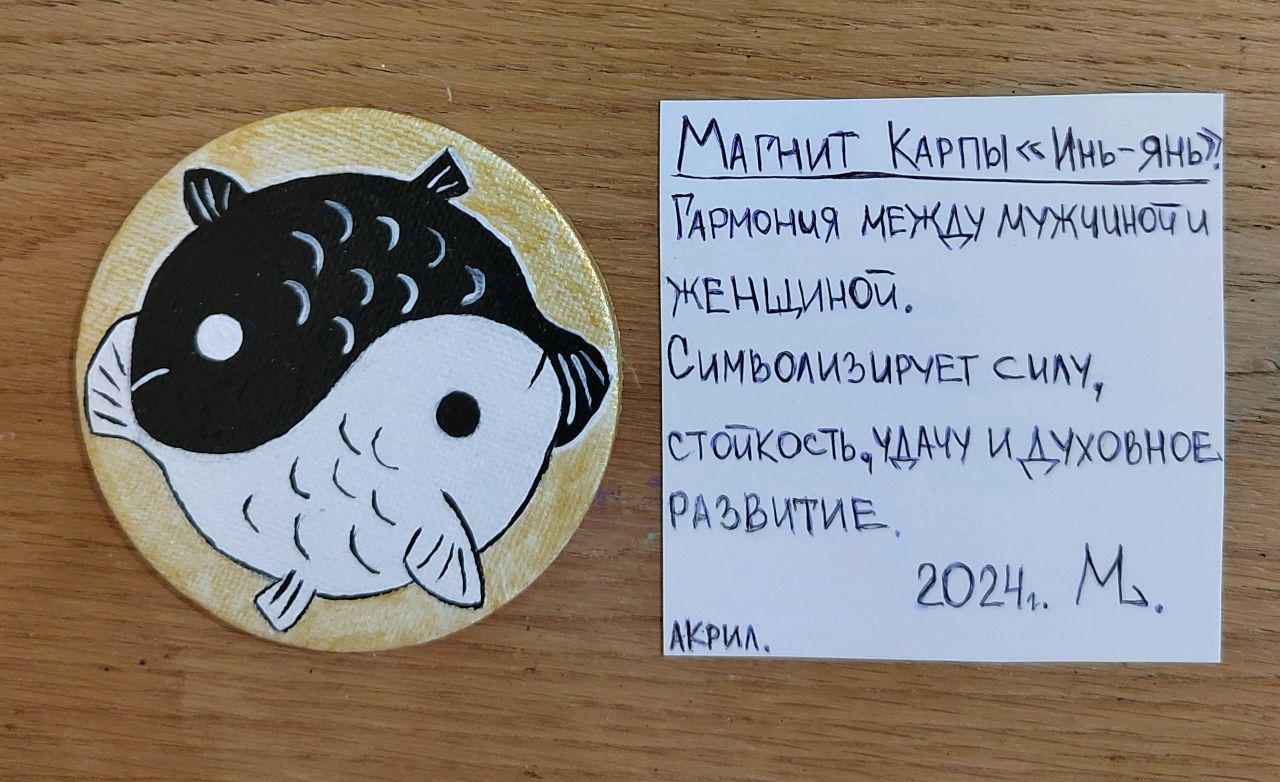 Магнит Карпы «Инь-янь».
Гармония между мужчиной и
женщиной.
Символизирует силу,
стойкость, удачу и духовное
развитие.
2024г. М.
акрил.